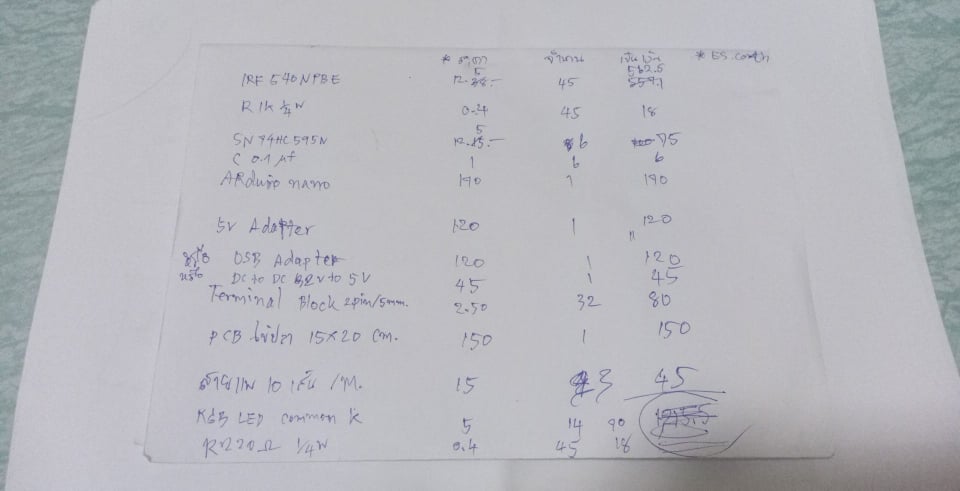 * ราคา จำนวน เป็นเงิน * ES.co.th
IRF 540NPBE 12.5 45 562.5
R 1k ¼W 0.4 45 18
SN74HC595N 12.5 6 75
C 0.1 µf 1 6 6
ARduino nano 190 1 190
5V Adapter 120 1 120
หรือ USB Adapter 120 1 120
หรือ DC to DC 12V to 5V 45 1 45
Terminal Block 2pin/5mm. 2.50 32 80
PCB ไข่ปลา 15x20 cm. 150 1 150
สายแพ 10 เส้น /M. 15 3 45
RGB LED common K 5 14 90
R 220Ω ¼W 0.4 45 18